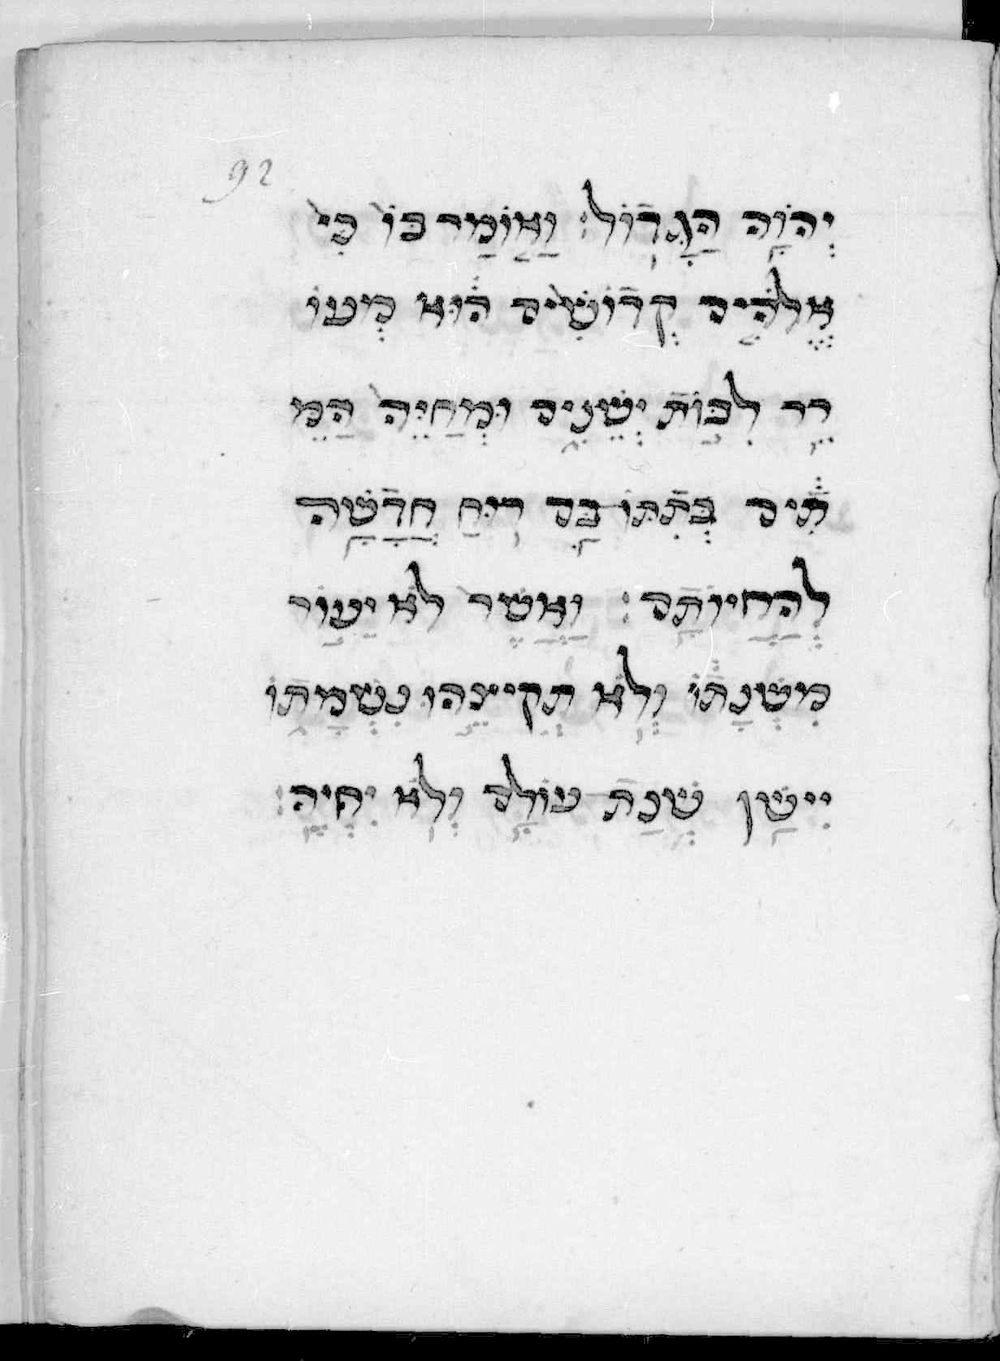 92
יְהוָֹה הַגָּדוֹל: וַאוֹמַר בּוֹ כִּי
אֱלֹהִים קְדוֹשִׁים הוּא מְעוֹ
רֵר לִבּוֹת יְשֵׁנִים וּמְחַיֵּה הַמֵּ
תִים בְּתִתּוֹ בָּם רוּחַ חֲדָשָׁה
לְהַחֲיוֹתָם: וַאֲשֶׁר לֹא יֵעוֹר
מִשְּׁנָתוֹ וְלֹא תְקִיצֵהוּ נִשְׁמָתוֹ
יִישַׁן שְׁנַת עוֹלָם וְלֹא יִחְיֶה: